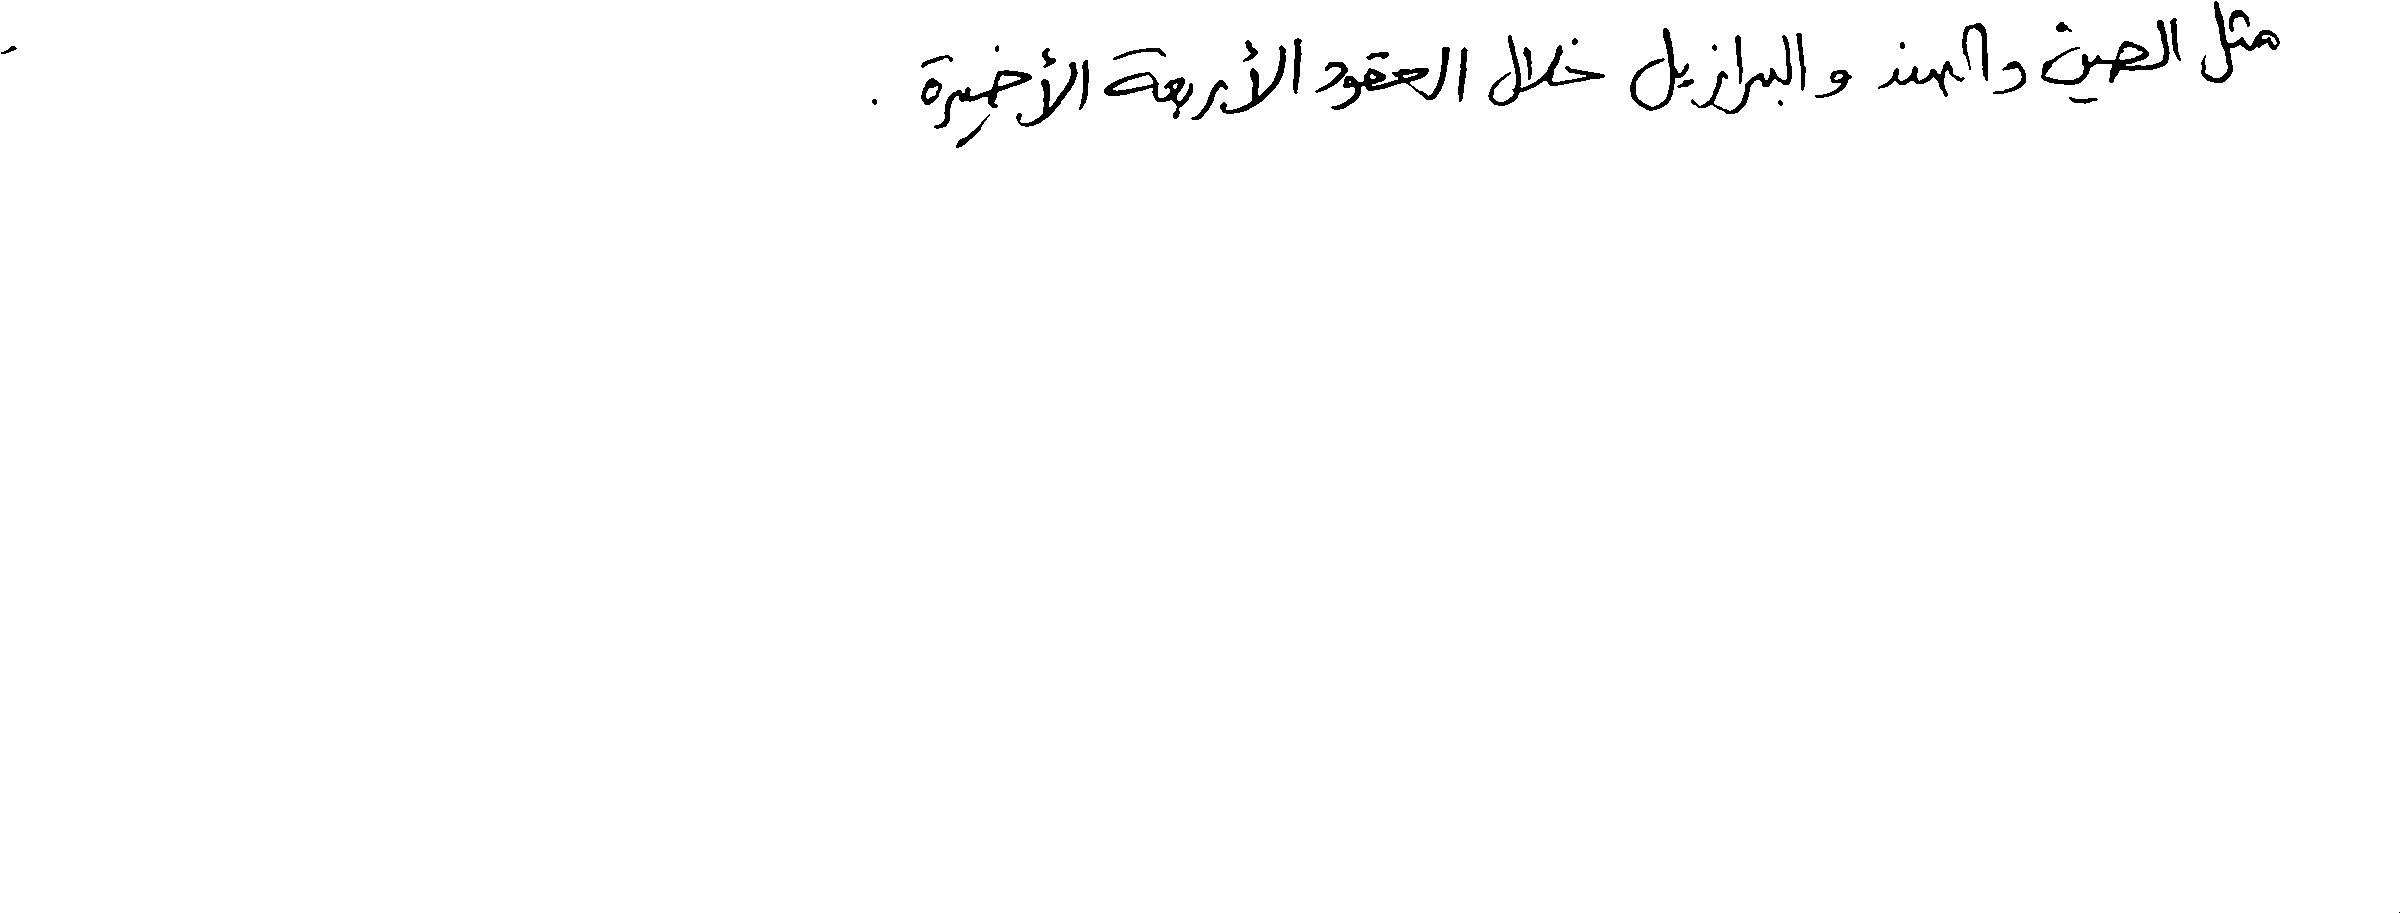 مثل الصين والهند والبرازيل خلال العقود الأربعة الأخيرة .